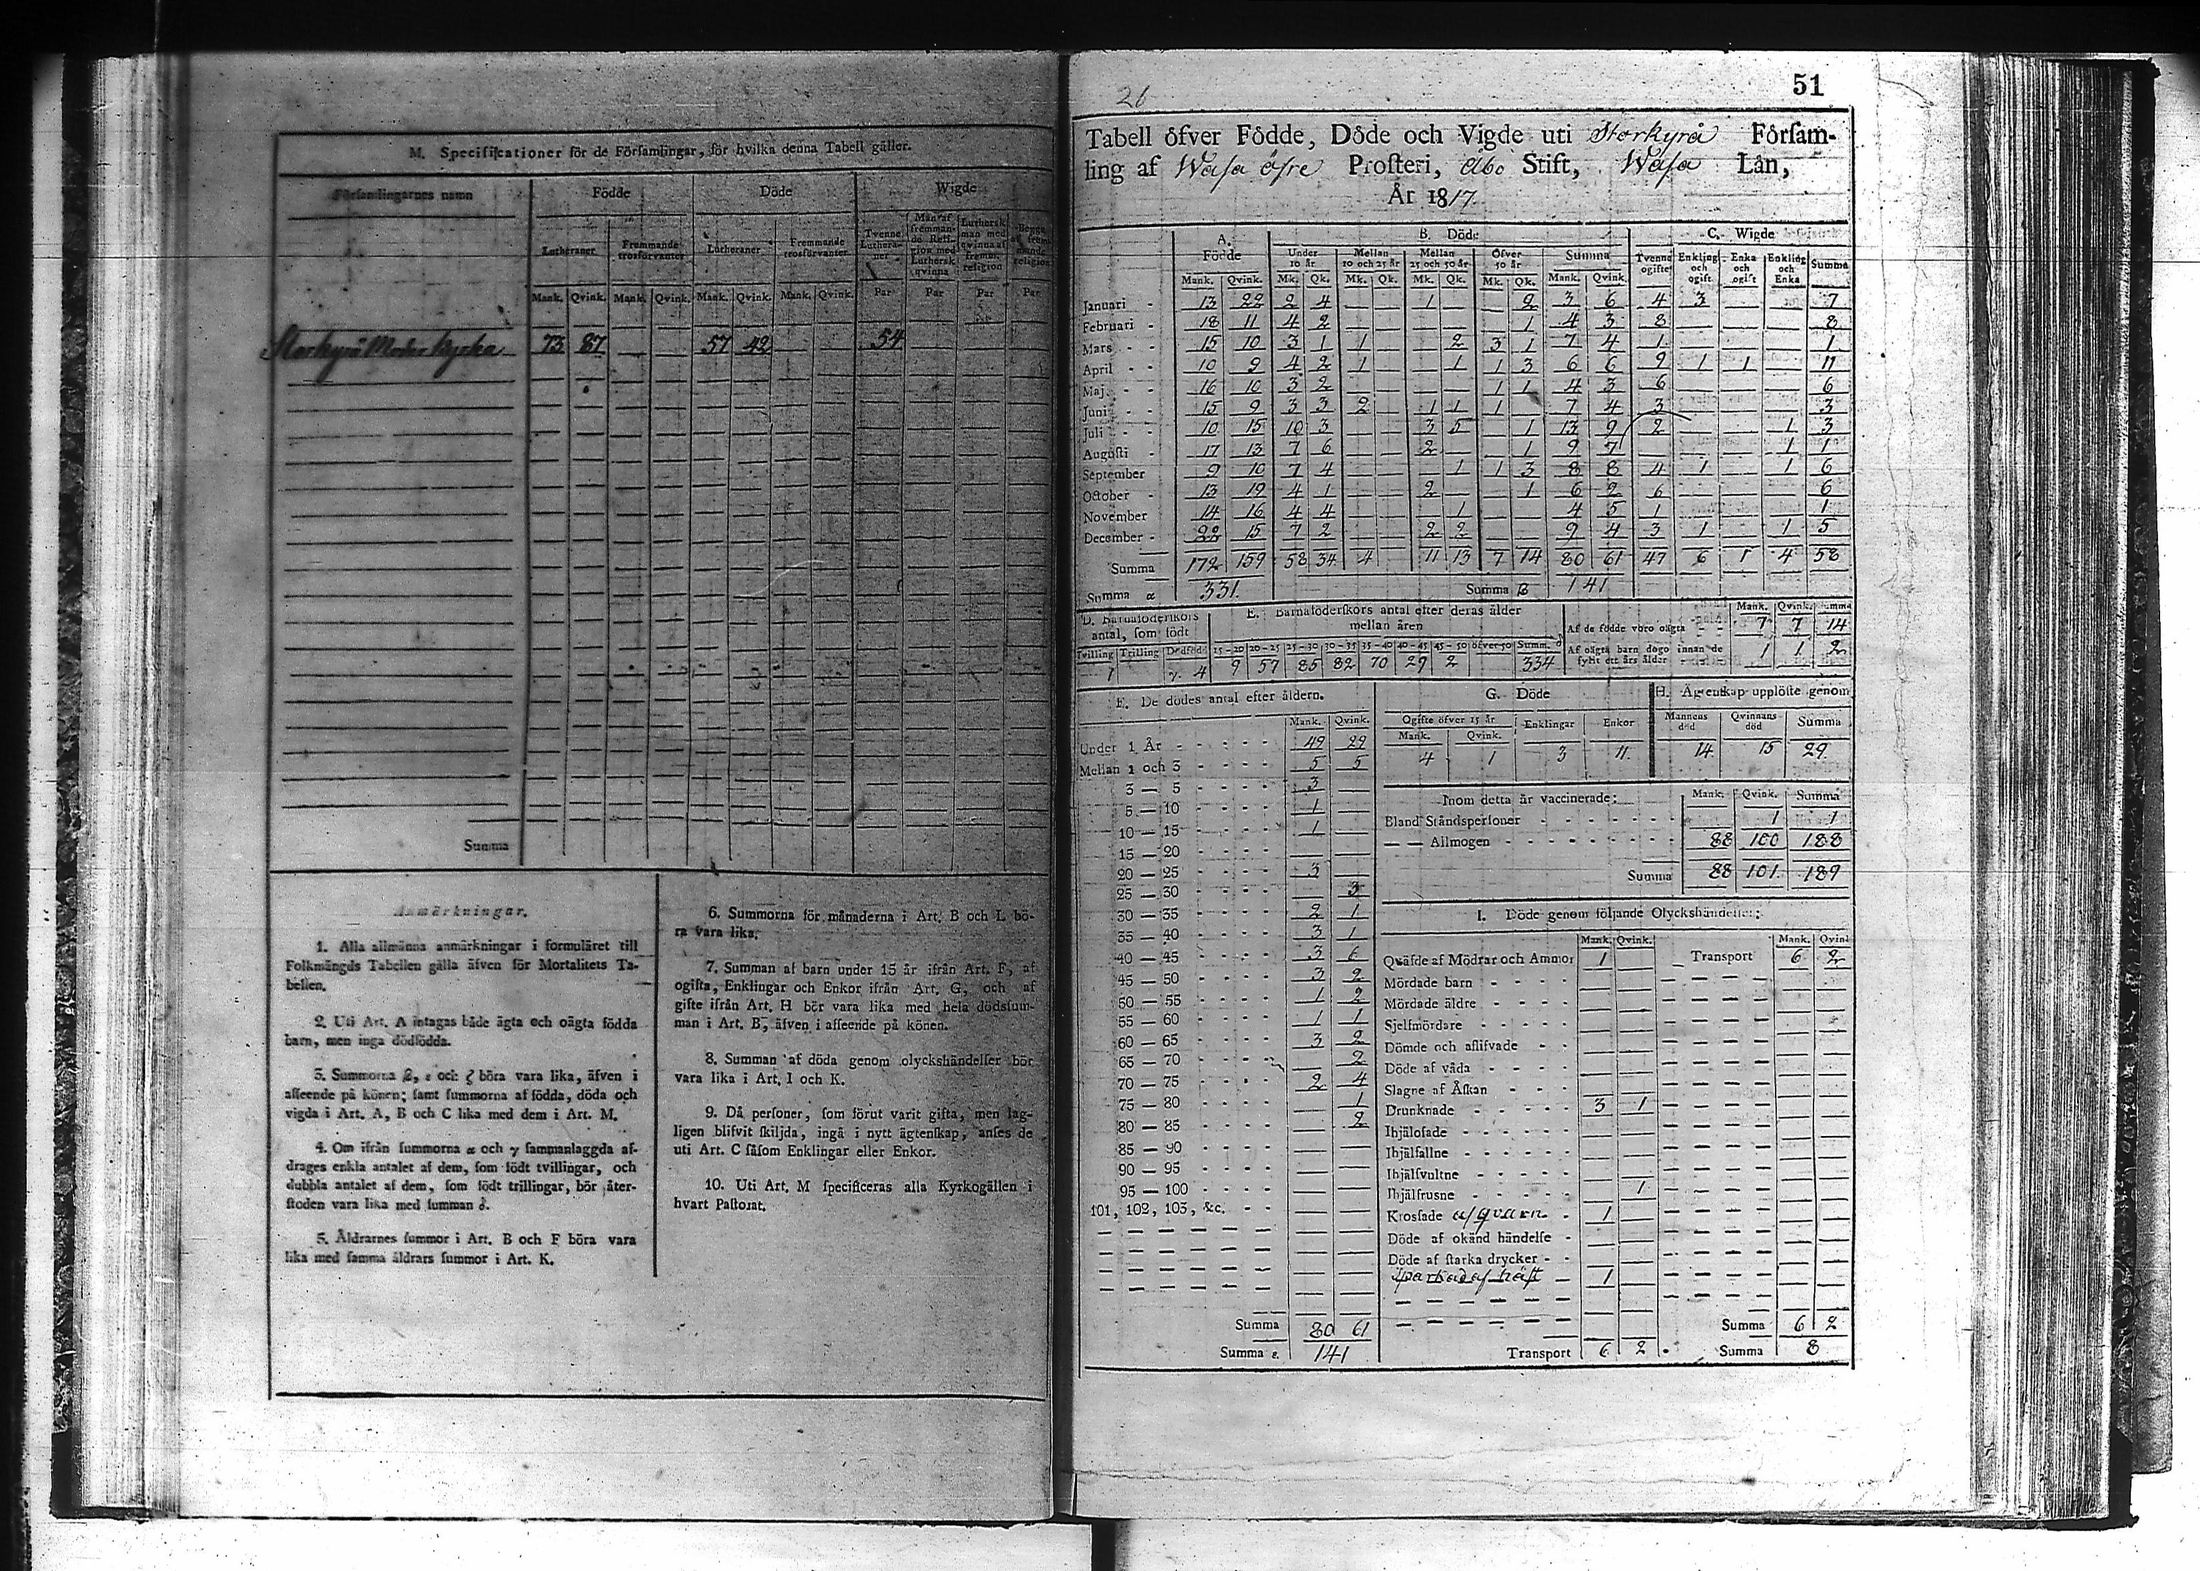 M. Specificationer för de Förſamlingar, för hvilka denna Tabell gäller.
Förſamlingarnes namn Födde Döde Wigde
Lutheraner Fremmande trosförvanter Lutheraner Fremmande trosförvanter Tvenne Lutheraner Man af fremmande Religion med Lutherſk qvinna Lutherſk man med qvinna af fremm. religion
Mank. Qvink. Mank. Qvink. Mank. Qvink. Mank. Qvink. Par Par Par Par
Storkyrå Moder Kyrka 73 87 57 42 54
Summa
Anmärkningar.
1. Alla allmänna anmärkningar i formuläret till
Folkmängds Tabellen gälla äfven för Mortalitets Ta-
bellen.
2. Uti Art. A intagas både ägta och oägta födda
barn, men inga dödfödda.
3. Summorna β, ε och ζ böra vara lika, äfven i
afſeende på könen; ſamt ſummorna af födda, döda och
vigda i Art. A, B och C lika med dem i Art. M.
4. Om ifrån ſummorna α och γ ſammanlaggda af-
drages enkla antalet af dem, ſom födt tvillingar, och
dubbla antalet af dem, ſom födt trillingar, bör åter-
ſtoden vara lika med ſumman δ.
5. Åldrarnes ſummor i Art. B och F böra vara
lika med ſamma åldrars ſummor i Art. K.
6. Summorna för månaderna i Art. B och L bö-
ra vara lika.
7. Summan af barn under 15 år ifrån Art. F, af
ogifta, Enklingar och Enkor ifrån Art. G, och af
gifte ifrån Art. H bör vara lika med hela dödsſum-
man i Art. B, äfven i afſeende på könen.
8. Summan af döda genom olyckshändelſer bör
vara lika i Art. I och K.
9. Då perſoner, ſom förut varit gifta, men lag-
ligen blifvit ſkiljda, ingå i nytt ägtenſkap, anſes de
uti Art. C ſåſom Enklingar eller Enkor.
10. Uti Art. M ſpecificeras alla Kyrkogällen i
hvart Paſtorat.
26
51
Tabell öfver Födde, Döde och Vigde uti Storkyrå Förſam-
ling af Waſa öfre Proſteri, Åbo Stift, Waſa Län,
År 1817.
A. Födde B. Döde C. Wigde
Under 10 år Mellan 10 och 25 år Mellan 25 och 50 år Öfver 50 år Summa Tvenne ogifte Enkling och ogift Enka och ogift Enkling och Enka Summa
Mank. Qvink. Mk. Qk. Mk. Qk. Mk. Qk. Mk. Qk. Mank. Qvink.
Januari - 13 22 2 4 1 2 3 6 4 3 7
Februari - 18 11 4 2 1 4 3 8 8
Mars - - 15 10 3 1 1 2 3 1 7 4 1 1
April - - 10 9 4 2 1 1 1 3 6 6 9 1 1 11
Maj - - 16 10 3 2 1 1 4 3 6 6
Juni - - 15 9 3 3 2 1 1 1 7 4 3 3
Juli - - 10 15 10 3 3 5 1 13 9 2 1 3
Auguſti - 17 13 7 6 2 1 9 7 1 1
September 9 10 7 4 1 1 3 8 8 4 1 1 6
October - 13 19 4 1 2 1 6 2 6 6
November 14 16 4 4 1 4 5 1 1
December - 22 15 7 2 2 2 9 4 3 1 1 5
Summa 172 159 58 34 4 11 13 7 14 80 61 47 6 1 4 58
Summa α 331. Summa β 141
D. Barnaföderſkors antal, ſom födt
Tvilling Trilling Dödfödd
1 γ. 4
E. Barnaföderſkors antal efter deras ålder
mellan åren
15-20 20-25 25-30 30-35 35-40 40-45 45-50 öfver 50 Summ. δ
9 57 85 82 70 29 2 334
Mank. Qvink. Summa
Af de födde voro oägta - - 7 7 14
Af oägta barn dogo innan de
fyllt ett års ålder 1 1 2
F. De dödes antal efter åldern.
Mank. Qvink.
Under 1 År - - - - - 49 29
Mellan 1 och 3 - - - - 5 5
3 — 5 - - - - 3
5 — 10 - - - - 1
10 — 15 - - - - 1
15 — 20 - - - -
20 — 25 - - - - 3
25 — 30 - - - - 3
30 — 35 - - - - 2 1
35 — 40 - - - - 3 1
40 — 45 - - - - 3 6
45 — 50 - - - - 3 2
50 — 55 - - - - 1 2
55 — 60 - - - - 1 1
60 — 65 - - - - 3 2
65 — 70 - - - - 2
70 — 75 - - - - 2 4
75 — 80 - - - - 1
80 — 85 - - - - 2
85 — 90 - - - -
90 — 95 - - - -
95 — 100 - - - -
101, 102, 103, &c. - - -
Summa 80 61
Summa ε. 141
G. Döde
Ogifte öfver 15 år Enklingar Enkor
Mank. Qvink.
4 1 3 11.
H. Ägtenſkap upplöſte genom
Mannens död Qvinnans död Summa
14 15 29.
Inom detta år vaccinerade: Mank. Qvink. Summa
Bland Ståndsperſoner - - - - - 1 1
— — Allmogen - - - - - 88 100 188
Summa 88 101 189
I. Döde genom följande Olyckshändelſer:
Mank. Qvink. Mank. Qvink
Qväfde af Mödrar och Ammor 1 Transport 6 2
Mördade barn - - - -
Mördade äldre - - - -
Sjelfmördare - - - -
Dömde och aflifvade - -
Döde af våda - - - -
Slagne af Åſkan - - - -
Drunknade - - - - - 3 1
Ihjälofade - - - - -
Ihjälfallne - - - -
Ihjälſvultne - - - -
Ihjälfrusne - - - - - 1
Krosſade af qvarn - 1
Döde af okänd händelſe -
Döde af ſtarka drycker - -
ſparkad af häſt — 1
Summa 6 2
Transport 6 2. Summa 8